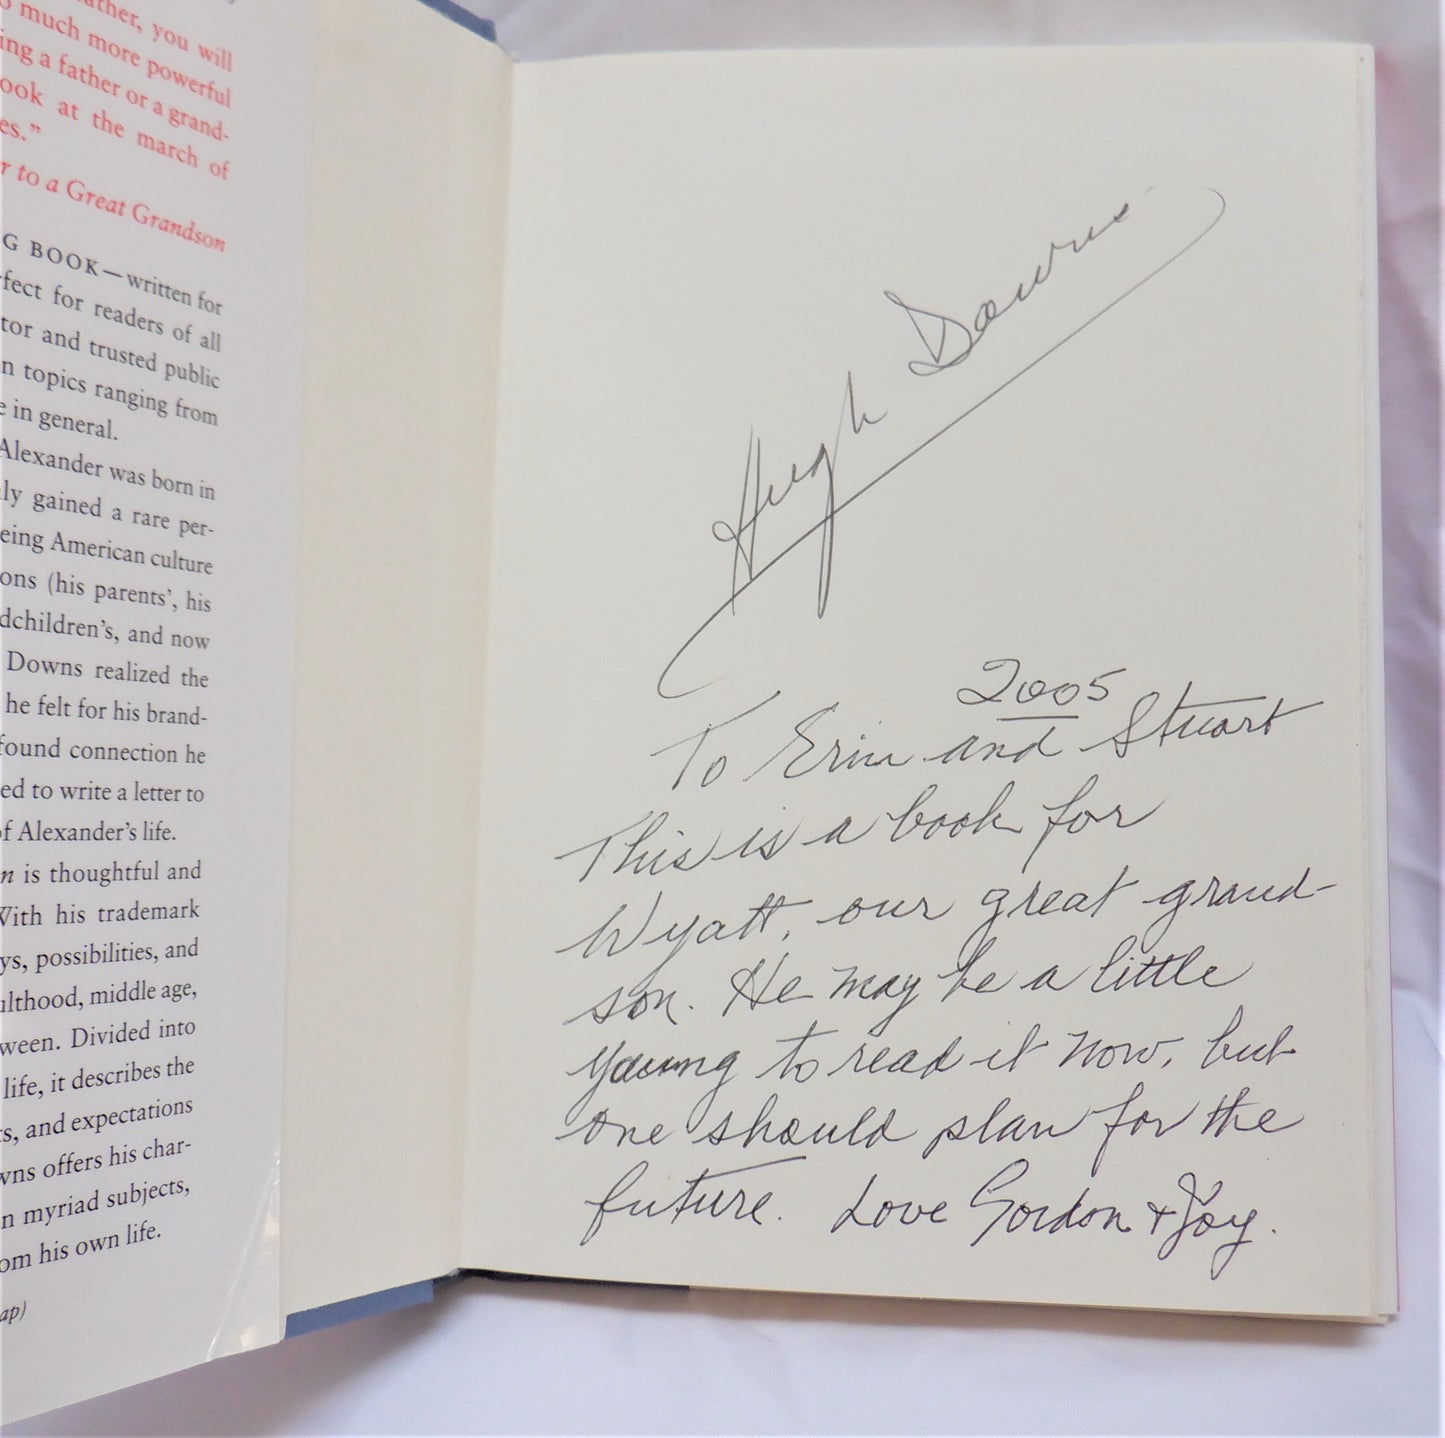 ather, you will
o much more powerful
ing a father or a grand-
ook at the march of
es."
r to a Great Grandson
G BOOK—written for
rfect for readers of all
tor and trusted public
n topics ranging from
e in general.
Alexander was born in
ly gained a rare per-
eing American culture
ons (his parents', his
dchildren's, and now
Downs realized the
he felt for his brand-
found connection he
ed to write a letter to
of Alexander's life.
n is thoughtful and
With his trademark
ys, possibilities, and
ulthood, middle age,
ween. Divided into
life, it describes the
ts, and expectations
wns offers his char-
n myriad subjects,
om his own life.
ap)
Hugh Downs
2005
To Erin and Stuart
This is a book for
Wyatt, our great grand-
son. He may be a little
young to read it now, but
one should plan for the
future. Love Gordon + Joy.